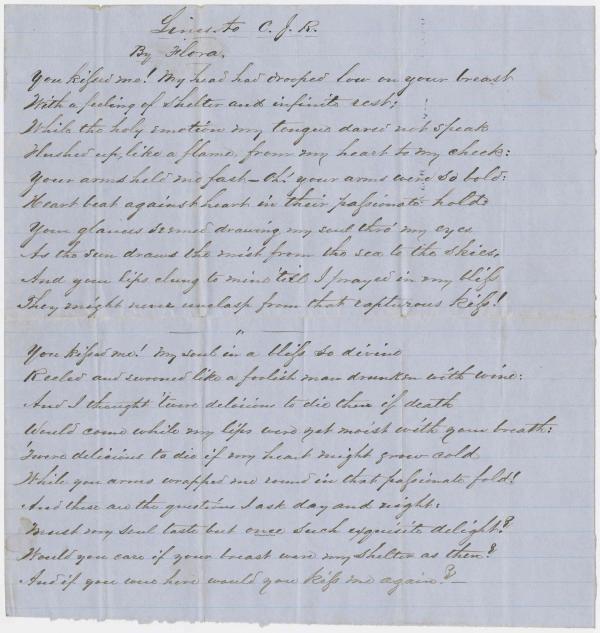 Lines to C. J. R.
By Flora.
You kissed me! My head had drooped low on your breast
With a feeling of shelter and infinite rest:
While the holy emotion my tongue dared not speak
Flushed up, like a flame, from my heart to my cheek:
Your arms held me fast – Oh! your arms were so bold:
Heart beat against heart in their passionate hold:
Your glances seemed drawing my soul thro' my eyes
As the sun draws the mist from the sea to the skies,
And your lips clung to mine till I prayed in my bliss
They might never unclasp from that rapturous kiss!
You kissed me! My soul in a bliss so divine
Reeled and swooned like a foolish man drunken with wine:
And I thought 'twere delicious to die then if death
Would come while my lips were yet moist with your breath:
'Twere delicious to die if my heart might grow cold
While you arms wrapped me round in that passionate fold!
And these are the questions I ask day and night:
Must my soul taste but once such exquisite delight?
Would you care if your breast were my shelter as then?
And if you were here would you kiss me again? –